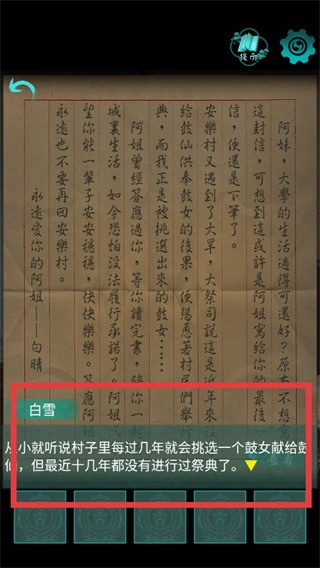 提示
阿妹，大學的生活過得可還好？原本不想
這封信，可想到這或許是阿姐寫給你的最後
信，便還是下筆了。
安樂村又遇到了大旱，大祭司說這是近年來沒
給鼓仙供奉鼓女的後果，便慫恿著村民們舉
典，而我正是被挑選出來的鼓女……
阿姐曾經答應過你，等你讀完書，陪你一起
城裏生活，如今恐怕沒法履行承諾了。阿姐
望你能一輩子安安穩穩，快快樂樂。答應阿
永遠也不要再回安樂村。
永遠愛你的阿姐——白晴
白雪
从小就听说村子里每过几年就会挑选一个鼓女献给鼓
仙，但最近十几年都没有进行过祭典了。